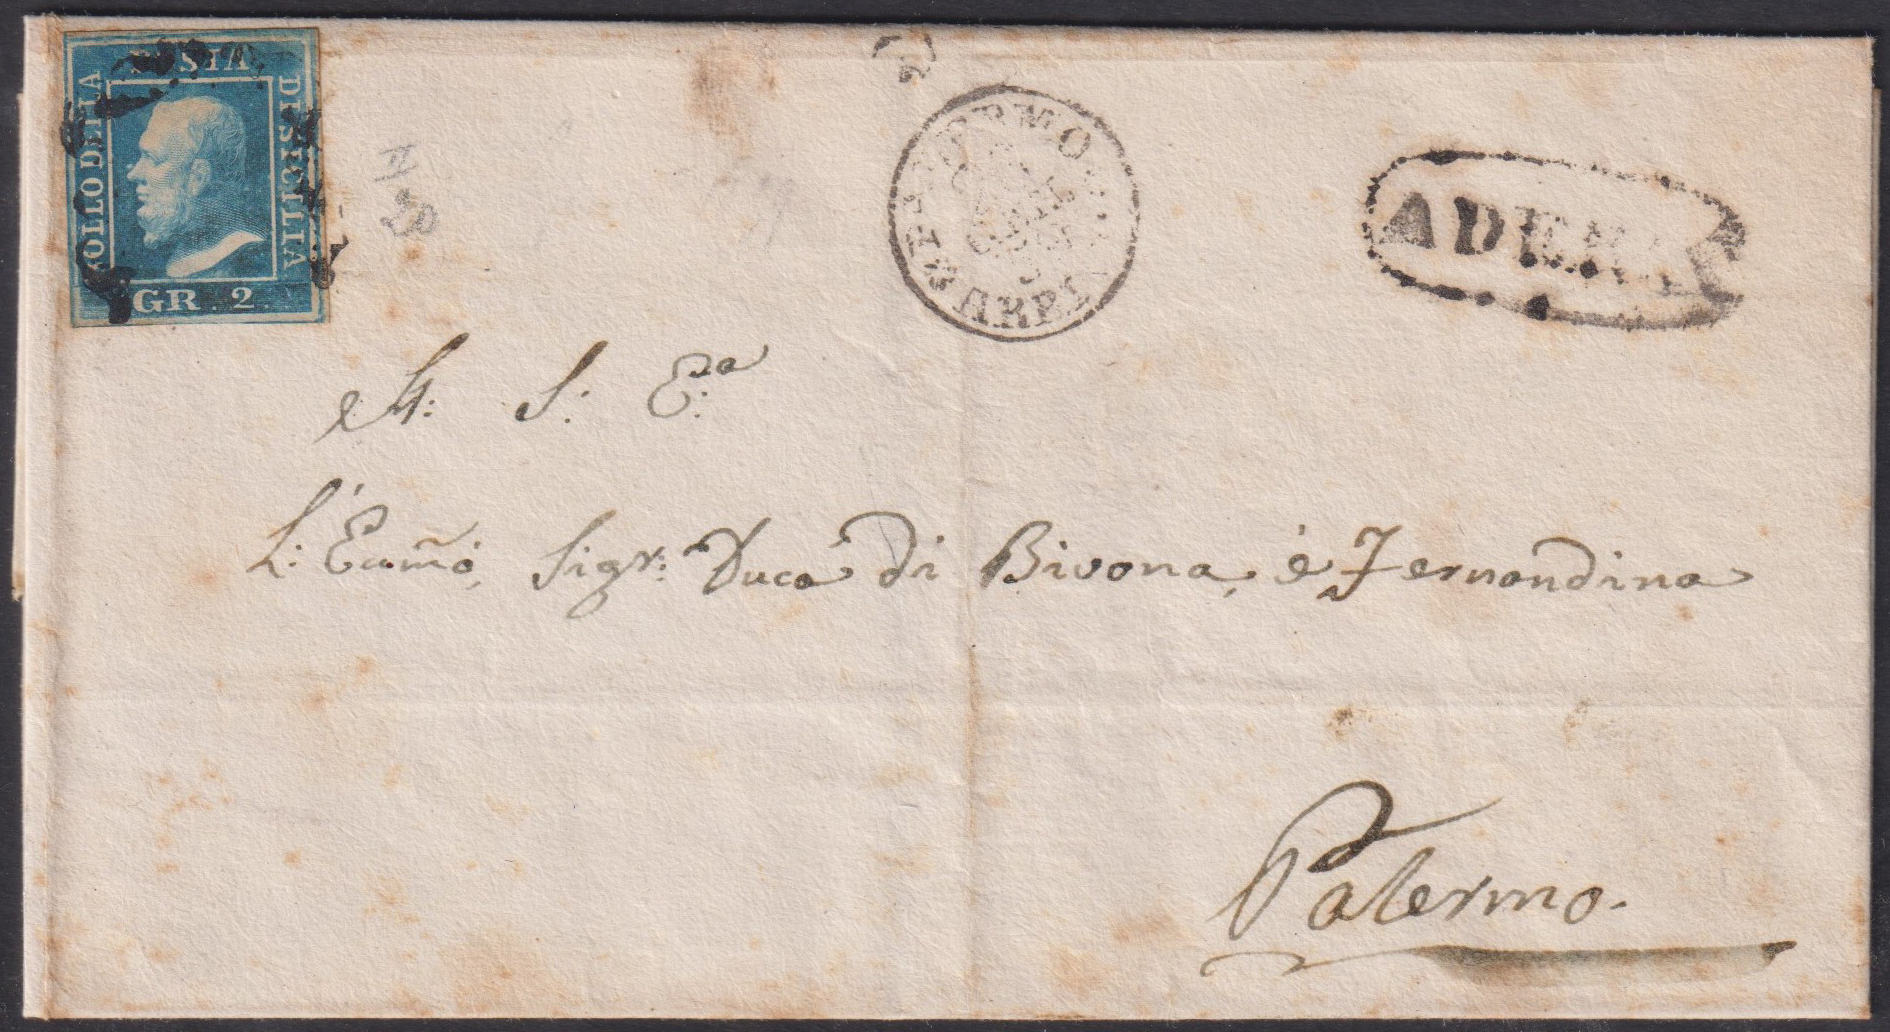 BOLLO DELLA
POSTA
DI SICILIA
GR. 2.
20
PALERMO
ARRIVO
A S: E:a
L: Ecc.mõ, Sigr: Duca di Bivona, é Fernandina
Palermo.